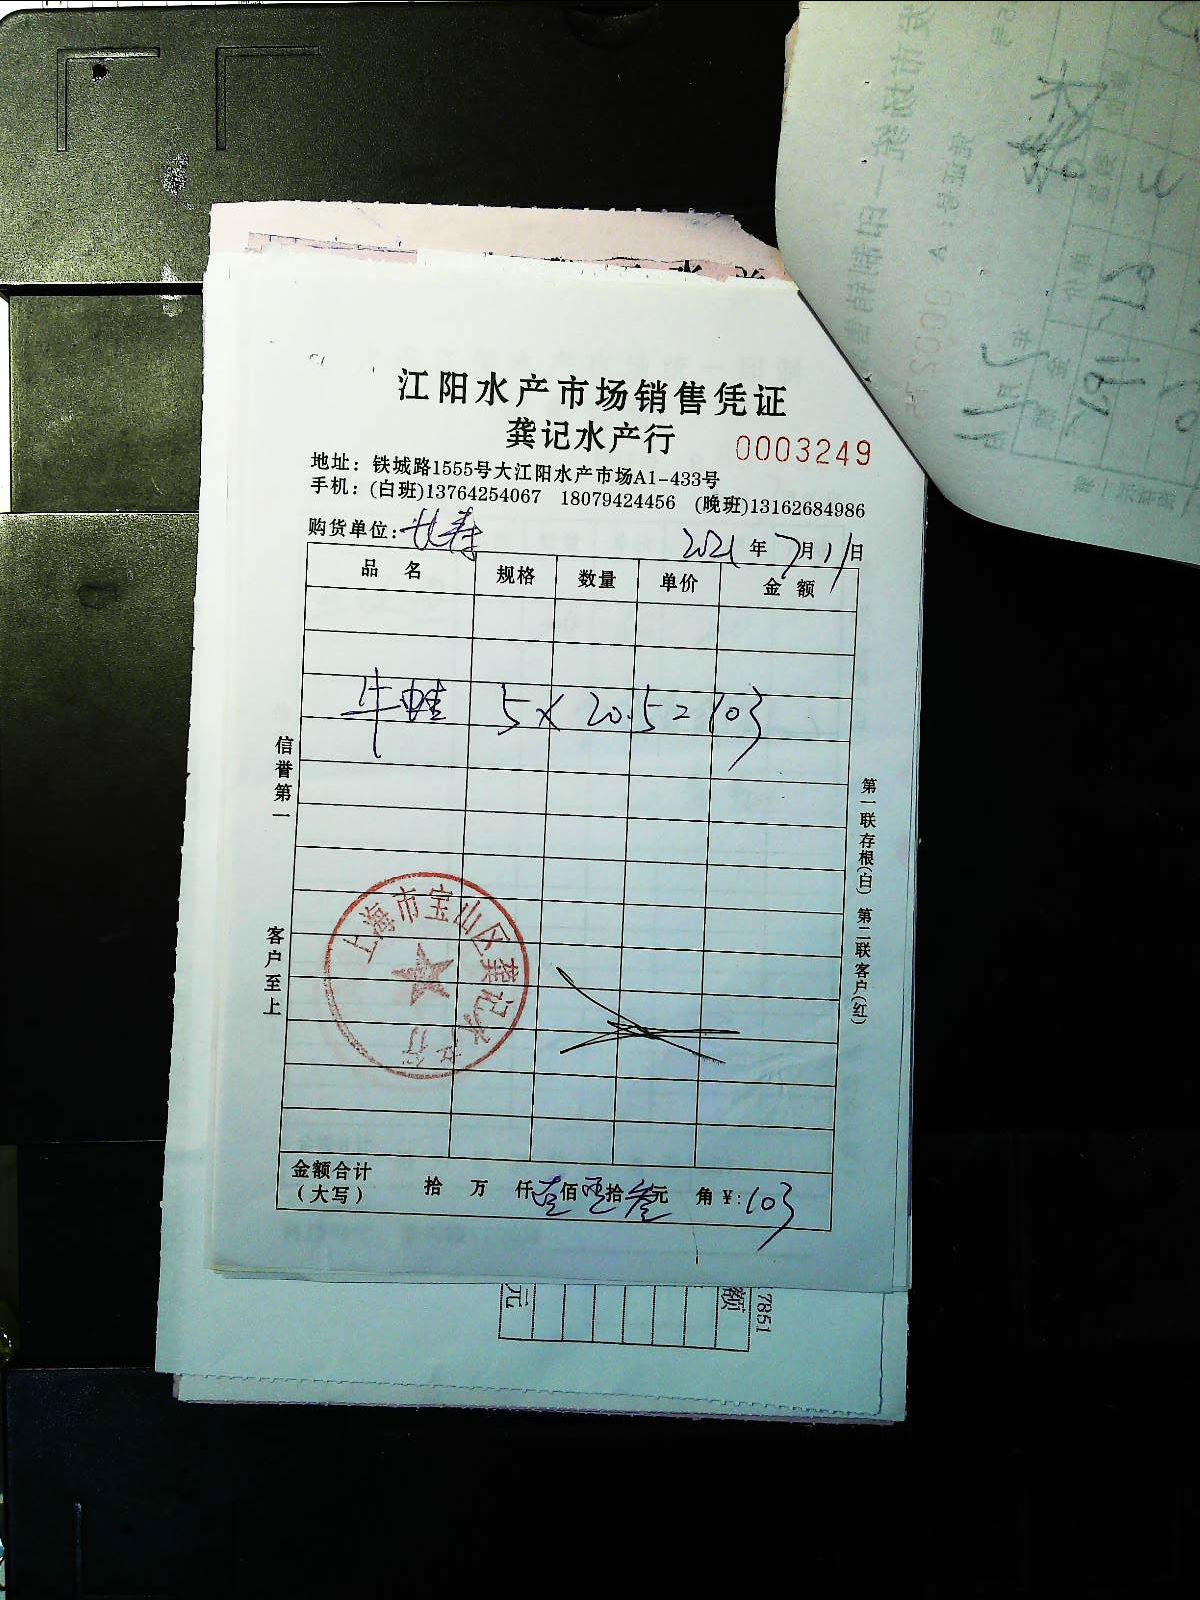 江阳水产市场销售凭证
龚记水产行 0003249
地址：铁城路1555号大江阳水产市场A1-433号
手机：(白班)13764254067 18079424456 (晚班)13162684986
购货单位:长寿 2021年7月11日
品 名 规格 数量 单价 金 额
牛蛙 5×20.5=103
信誉第一 客户至上
第一联存根(白) 第二联客户(红)
上海市宝山区龚记水产行
金额合计
(大写) 拾 万 仟壹佰零拾叁元 角 ¥:103
元 额
7851